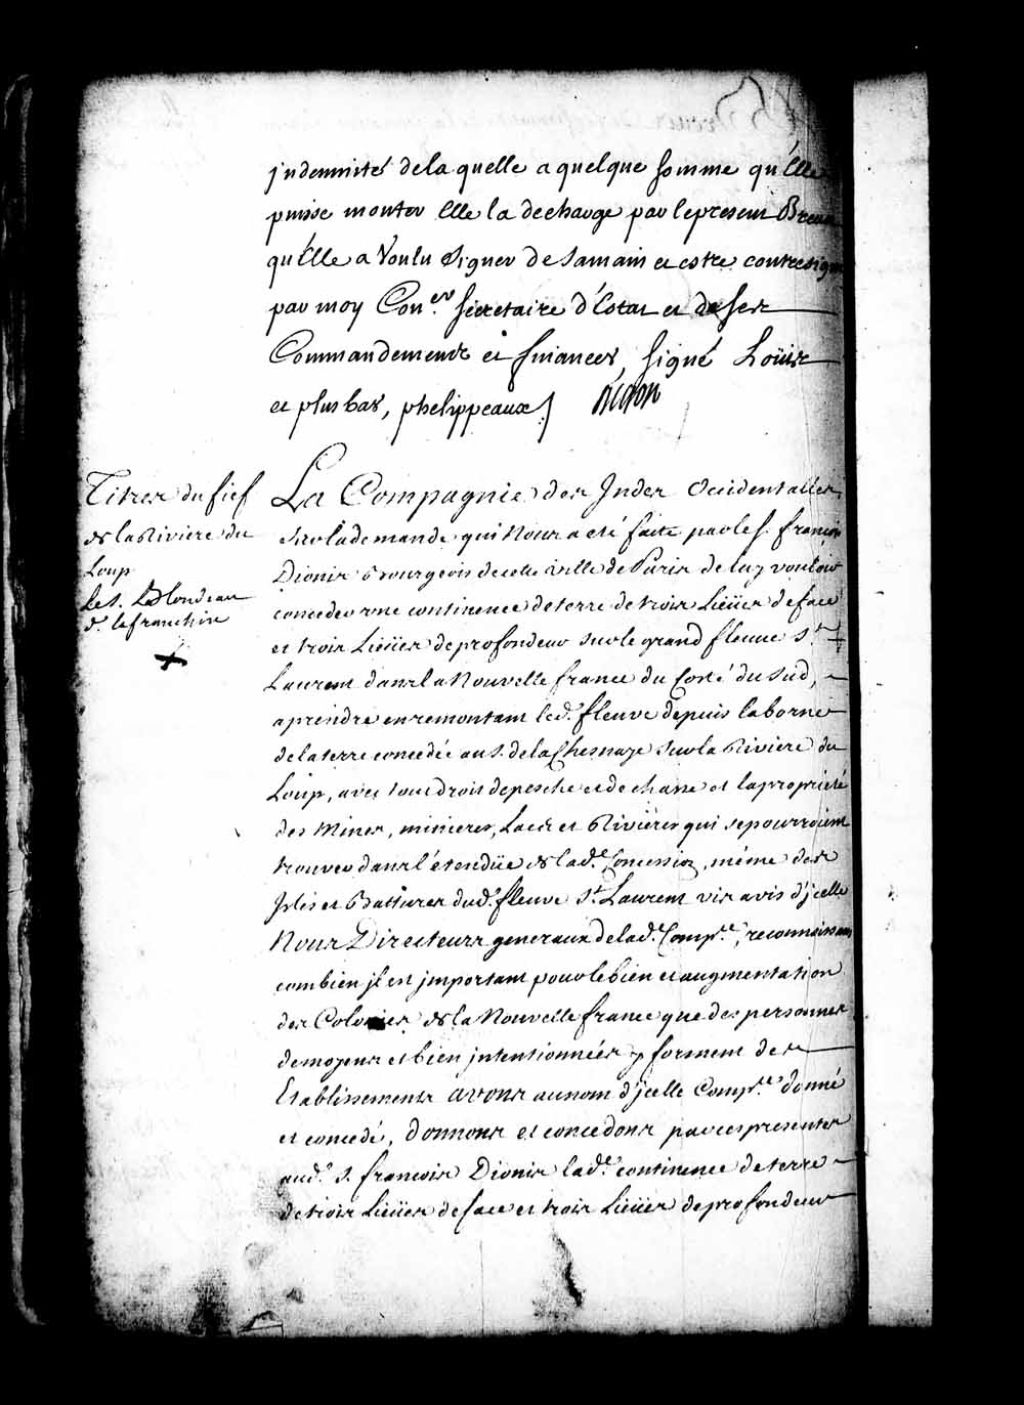 jndemnité dela quelle a quelque somme qu'Elle
puisse monter Elle la decharge par lepresent Brevet
qu'Elle a Voulu signer de samain et estre contresigné
par moy Con.er secretaire d'Estat et de ses
Commandements et finances, signé Loüis
et plus bas, phelippeaux] Bégon
Titres du fief
de la Riviere du
Loup
Le S. Blondeau
d. lafranchise
La Compagnie des Indes Occidentalles
Surlademande qui Nous a eté faite parle S. francois
Dionis Bourgeois decette ville de Paris de luy vouloir
conceder une continence deterre detrois Lieües deface
et trois Lieües deprofondeur surle grand fleuve S.t
Laurent dansla Nouvelle france du Costé du Sud,
aprendre enremontant led. fleuve depuis laborne
delaterre concedée au S. dela Chesnaye surla Riviere du
Loup, avec tout droit depesche et de chasse et lapropriété
des Mines, minieres, Lacs et Rivières qui sepourroient
trouver dansl'étendüe de lad.e Concession, même des
Isles et Battures dud. fleuve S.t Laurent vis avis d'jcelle
Nous Directeurs generaux delad. Comp.e, reconnoissant
combien jl est jmportant pourlebien et augmentation
des Colonies de la Nouvelle france que des personnes
demoyens et bien jntentionnées y forment des
Etablissements avons aunom d'jcelle Comp.e donné
et concedé, donnons et concedons parces presentes
aud. S. francois Dionis lad.e continence deterre
detrois Lieües deface et trois Lieües deprofondeur